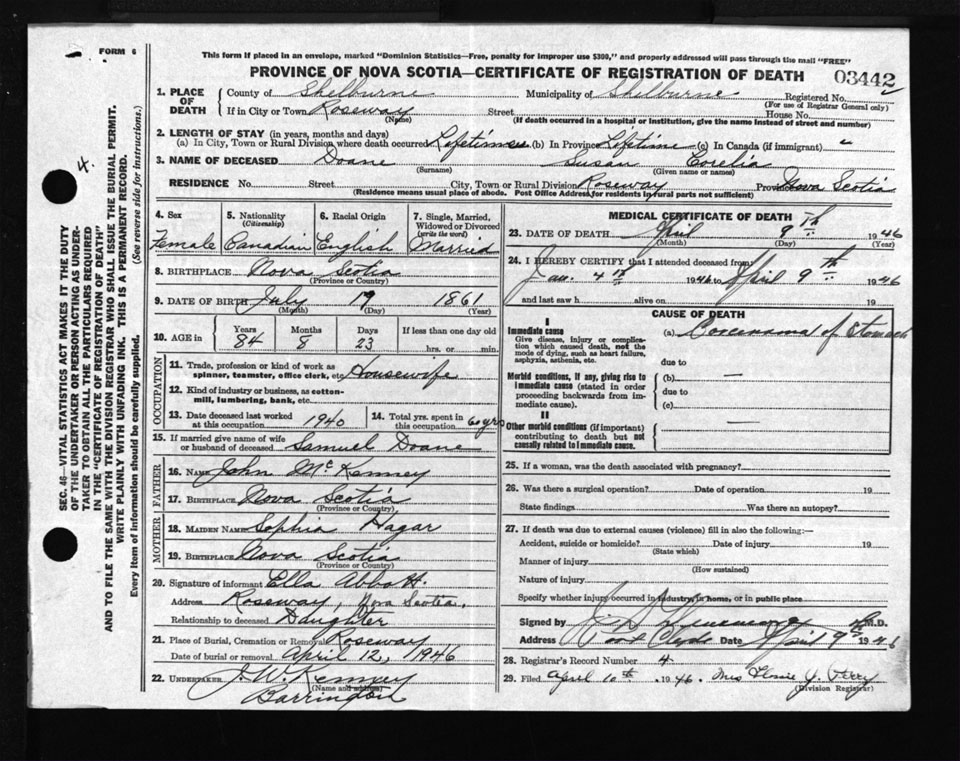 FORM 6
This form if placed in an envelope, marked "Dominion Statistics—Free, penalty for improper use $300," and properly addressed will pass through the mail "FREE"
PROVINCE OF NOVA SCOTIA—CERTIFICATE OF REGISTRATION OF DEATH 03442
1. PLACE OF DEATH
County of Shelburne Municipality of Shelburne Registered No.
(For use of Registrar General only)
If in City or Town Roseway Street House No.
(Name) (If death occurred in a hospital or institution, give the name instead of street and number)
2. LENGTH OF STAY (in years, months and days)
(a) In City, Town or Rural Division where death occurred Lifetime (b) In Province Lifetime (c) In Canada (if immigrant) "
3. NAME OF DECEASED Doane Susan Corelia
(Surname) (Given name or names)
RESIDENCE No. Street City, Town or Rural Division Roseway Province Nova Scotia
(Residence means usual place of abode. Post Office Address for residents in rural parts not sufficient)
4. Sex Female
5. Nationality (Citizenship) Canadian
6. Racial Origin English
7. Single, Married, Widowed or Divorced (write the word) Married
8. BIRTHPLACE Nova Scotia
(Province or Country)
9. DATE OF BIRTH July 17 1861
(Month) (Day) (Year)
10. AGE in Years 84 Months 8 Days 23 If less than one day old hrs. or min.
OCCUPATION
11. Trade, profession or kind of work as spinner, teamster, office clerk, etc. Housewife
12. Kind of industry or business, as cotton-mill, lumbering, bank, etc.
13. Date deceased last worked at 1940
14. Total yrs. spent in 60 yrs
15. If married give name of wife or husband of deceased Samuel Doane
FATHER
16. NAME John McKenney
17. BIRTHPLACE Nova Scotia
(Province or Country)
MOTHER
18. MAIDEN NAME Sophia Hagar
19. BIRTHPLACE Nova Scotia
(Province or Country)
20. Signature of informant Ella Abbott.
Address Roseway, Nova Scotia.
Relationship to deceased Daughter
21. Place of Burial, Cremation or Removal Roseway
Date of burial or removal April 12, 1946
22. UNDERTAKER J. W. Kenney
(Name and address)
Barrington
MEDICAL CERTIFICATE OF DEATH
23. DATE OF DEATH April 9th 1946
(Month) (Day) (Year)
24. I HEREBY CERTIFY that I attended deceased from:
Jan. 4th 1946 to April 9th 1946
and last saw h alive on 19
CAUSE OF DEATH
I
Immediate cause
Give disease, injury or complication which caused death, not the mode of dying, such as heart failure, asphyxia, asthenia, etc.
(a) Carcinoma of Stomach
due to
Morbid conditions, if any, giving rise to immediate cause (stated in order proceeding backwards from immediate cause).
(b) —
due to
(c)
II
Other morbid conditions (if important) contributing to death but not causally related to immediate cause.
—
25. If a woman, was the death associated with pregnancy?
26. Was there a surgical operation? Date of operation 19
State findings Was there an autopsy?
27. If death was due to external causes (violence) fill in also the following:—
Accident, suicide or homicide? Date of injury 19
(State which)
Manner of injury
(How sustained)
Nature of injury
Specify whether injury occurred in industry, in home, or in public place
Signed by M.D.
Address Port Clyde Date April 9th 1946
28. Registrar's Record Number 4
29. Filed April 10th 1946. Mrs J. Perry
(Division Registrar)
4.
SEC. 46—VITAL STATISTICS ACT MAKES IT THE DUTY
OF THE UNDERTAKER OR PERSON ACTING AS UNDER-
TAKER TO OBTAIN ALL THE PARTICULARS REQUIRED
IN THE "CERTIFICATE OF REGISTRATION OF DEATH"
AND TO FILE THE SAME WITH THE DIVISION REGISTRAR WHO SHALL ISSUE THE BURIAL PERMIT.
WRITE PLAINLY WITH UNFADING INK. THIS IS A PERMANENT RECORD.
Every item of information should be carefully supplied. (See reverse side for instructions.)